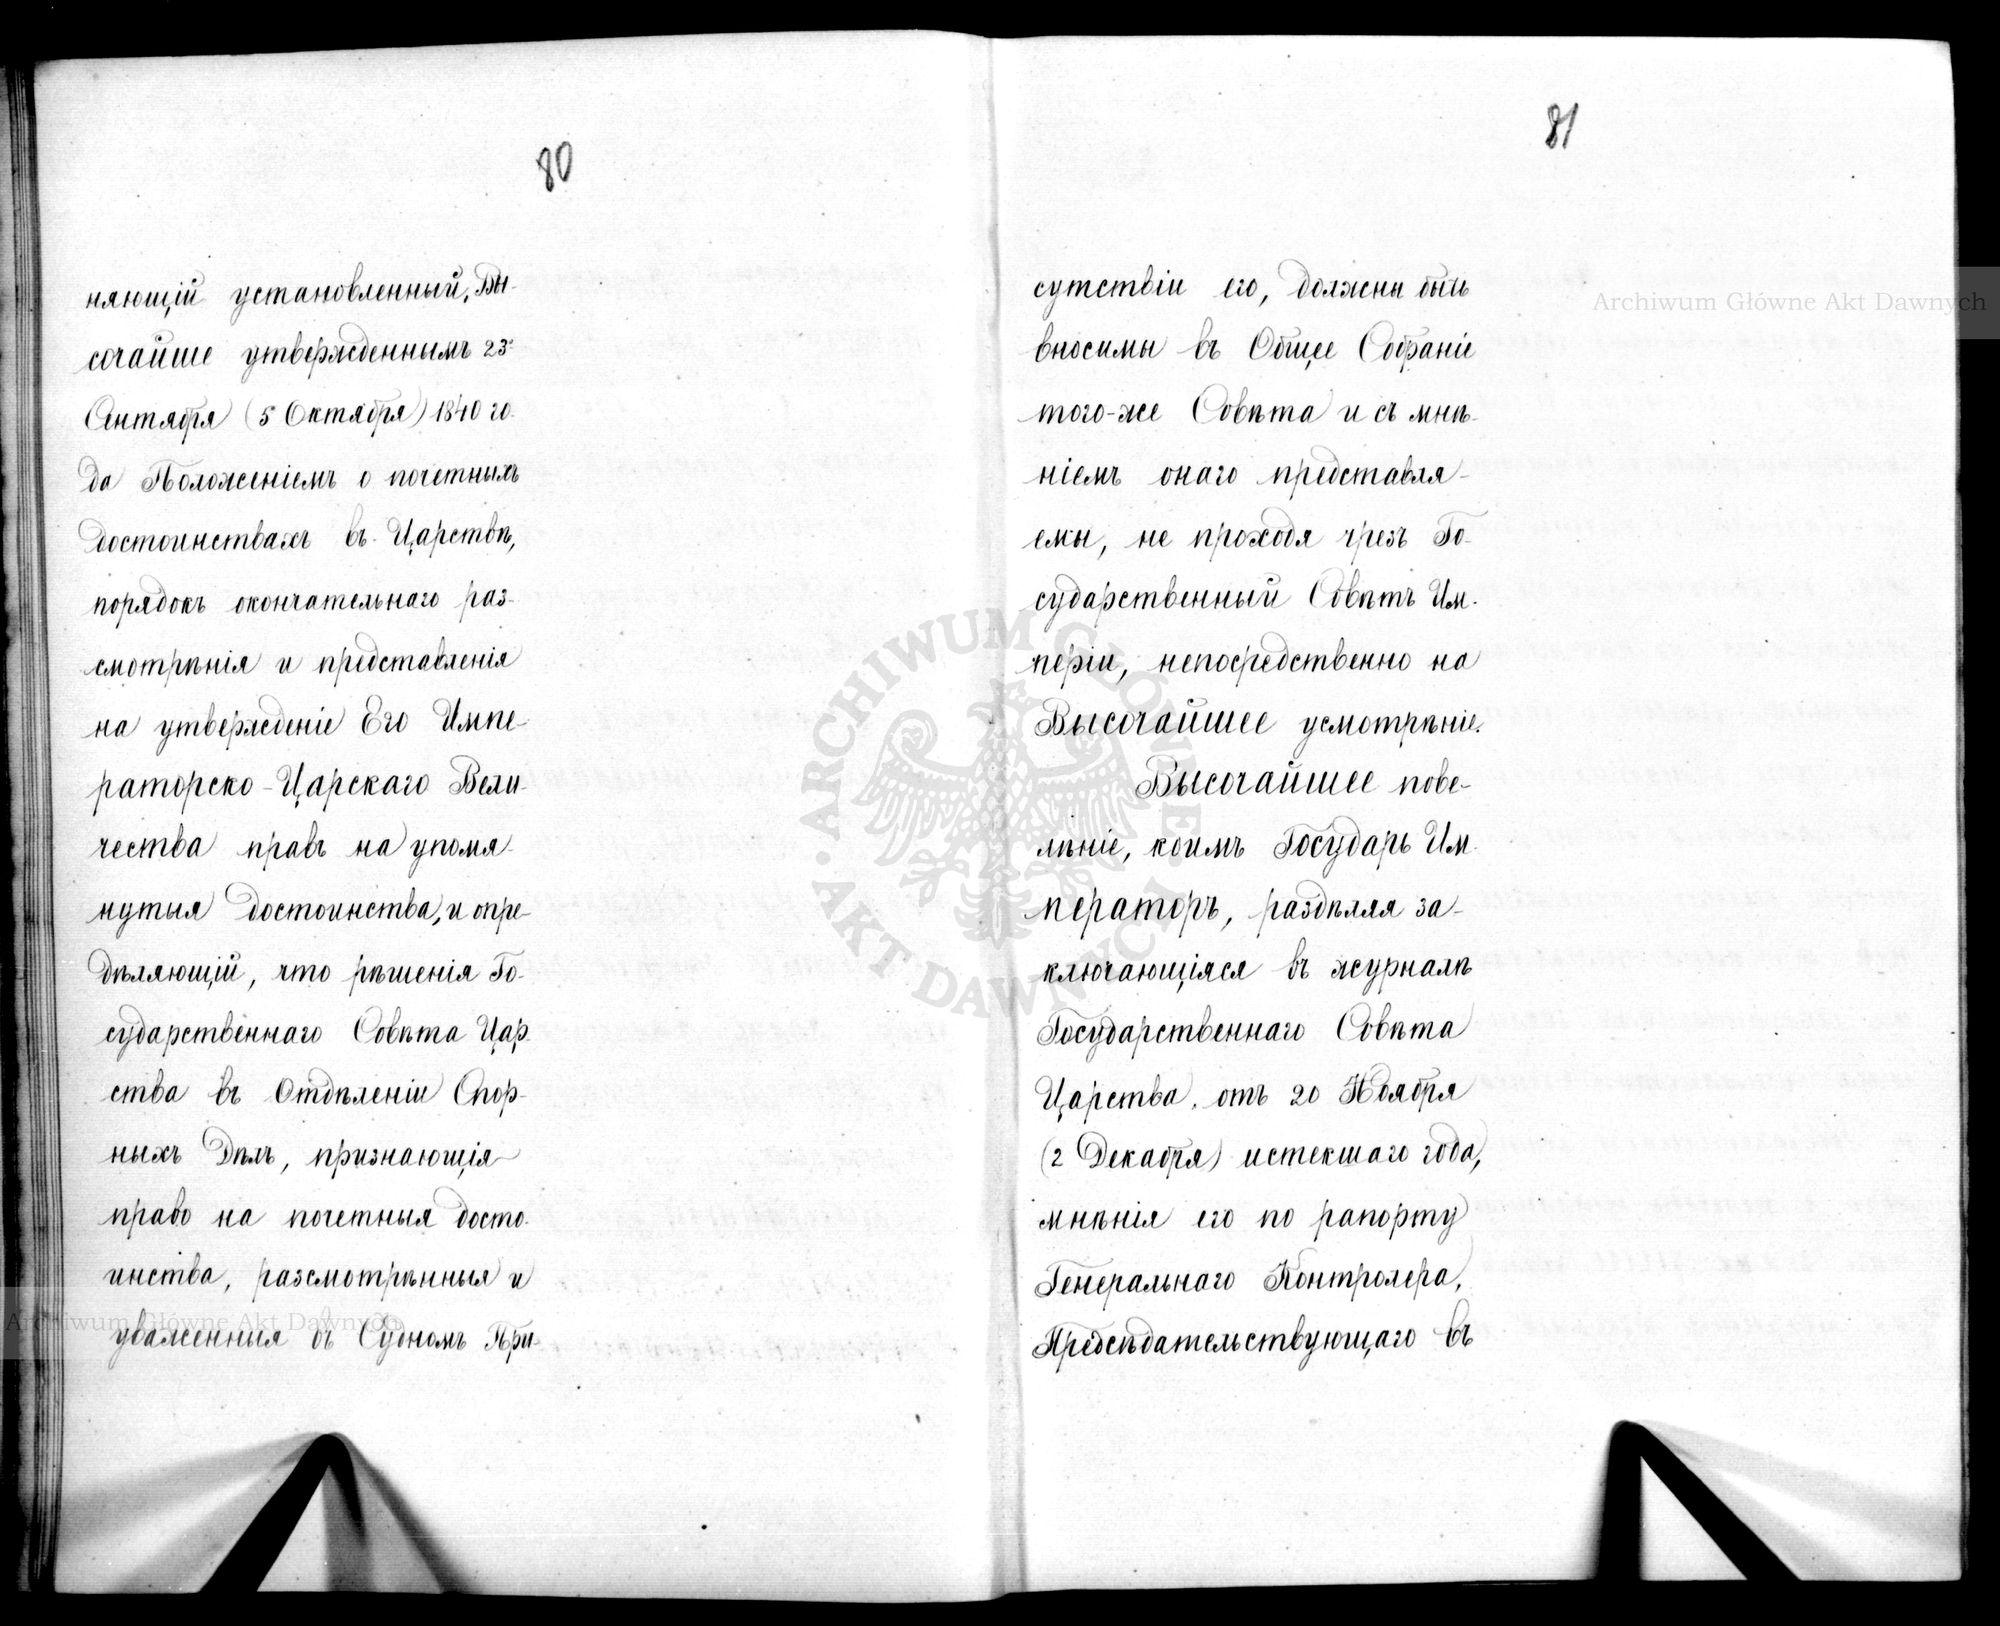 80
няющій установленный, Вы-
сочайше утвержденнымъ 23.
Сентября (5 Октября) 1840 го-
да Положеніемъ о почетныхъ
достоинствахъ въ Царствѣ,
порядокъ окончательнаго раз-
смотрѣнія и представленія
на утвержденіе Его Импе-
раторско-Царскаго Вели-
чества правъ на упомя-
нутыя достоинства, и опре-
дѣляющій, что рѣшенія Го-
сударственнаго Совѣта Цар-
ства въ Отдѣленіи Спор-
ныхъ Дѣлъ, признающія
право на почетныя досто-
инства, разсмотрѣнныя и
уваженныя въ Судномъ При-
81
сутствіи его, должны быть
вносимы въ Общее Собраніе
того-же Совѣта и съ мнѣ-
ніемъ онаго представля-
емы, не проходя чрезъ Го-
сударственный Совѣтъ Им-
періи, непосредственно на
Высочайшее усмотрѣніе.
Высочайшее пове-
лѣніе, коимъ Государь Им-
ператоръ, раздѣляя за-
ключающіяся въ журналѣ
Государственнаго Совѣта
Царства, отъ 20 Ноября
(2 Декабря) истекшаго года,
мнѣнія его по рапорту
Генеральнаго Контролера,
Предсѣдательствующаго въ
Archiwum Główne Akt Dawnych
Archiwum Główne Akt Dawnych
ARCHIWUM GŁÓWNE · AKT DAWNYCH ·